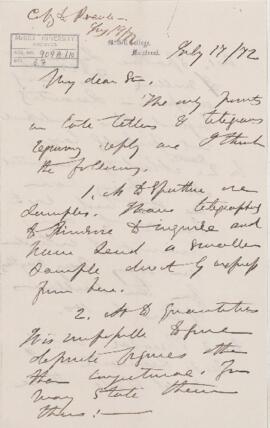 McGill College,
Montreal.
July 17/72
McGILL UNIVERSITY
ARCHIVES
ACC. NO. 909A/10
REF. 27
My dear Sir.
The only points
in late letters & telegrams
requiring reply are I think
the following.
1. As to
samples. I have telegraphed
to to inquire and
have send a smaller
sample direct by express
from here.
2. As to quantities
it is impossible to give
definite figures other
than conjectural. You
may state them
thus:—